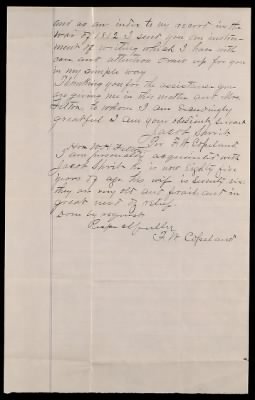 and as an index to my record in the
War of 1812 I send you an instru-
ment of writing which I have with
care and attention drawn up for you
in my simple way
Thanking you for the assistance you
are giving me in this matter and Mr
Felton to whom I am exceedingly
greatful I am your obedient servant
Jacob
Per F. W. Copeland
Hon. W. H. Felton
I am personally acquainted with
Jacob he is now eighty five
years of age his wife is seventy six
they are very old and frail and in
great need of relief.
Done by request
Respectfully
F. W. Copeland